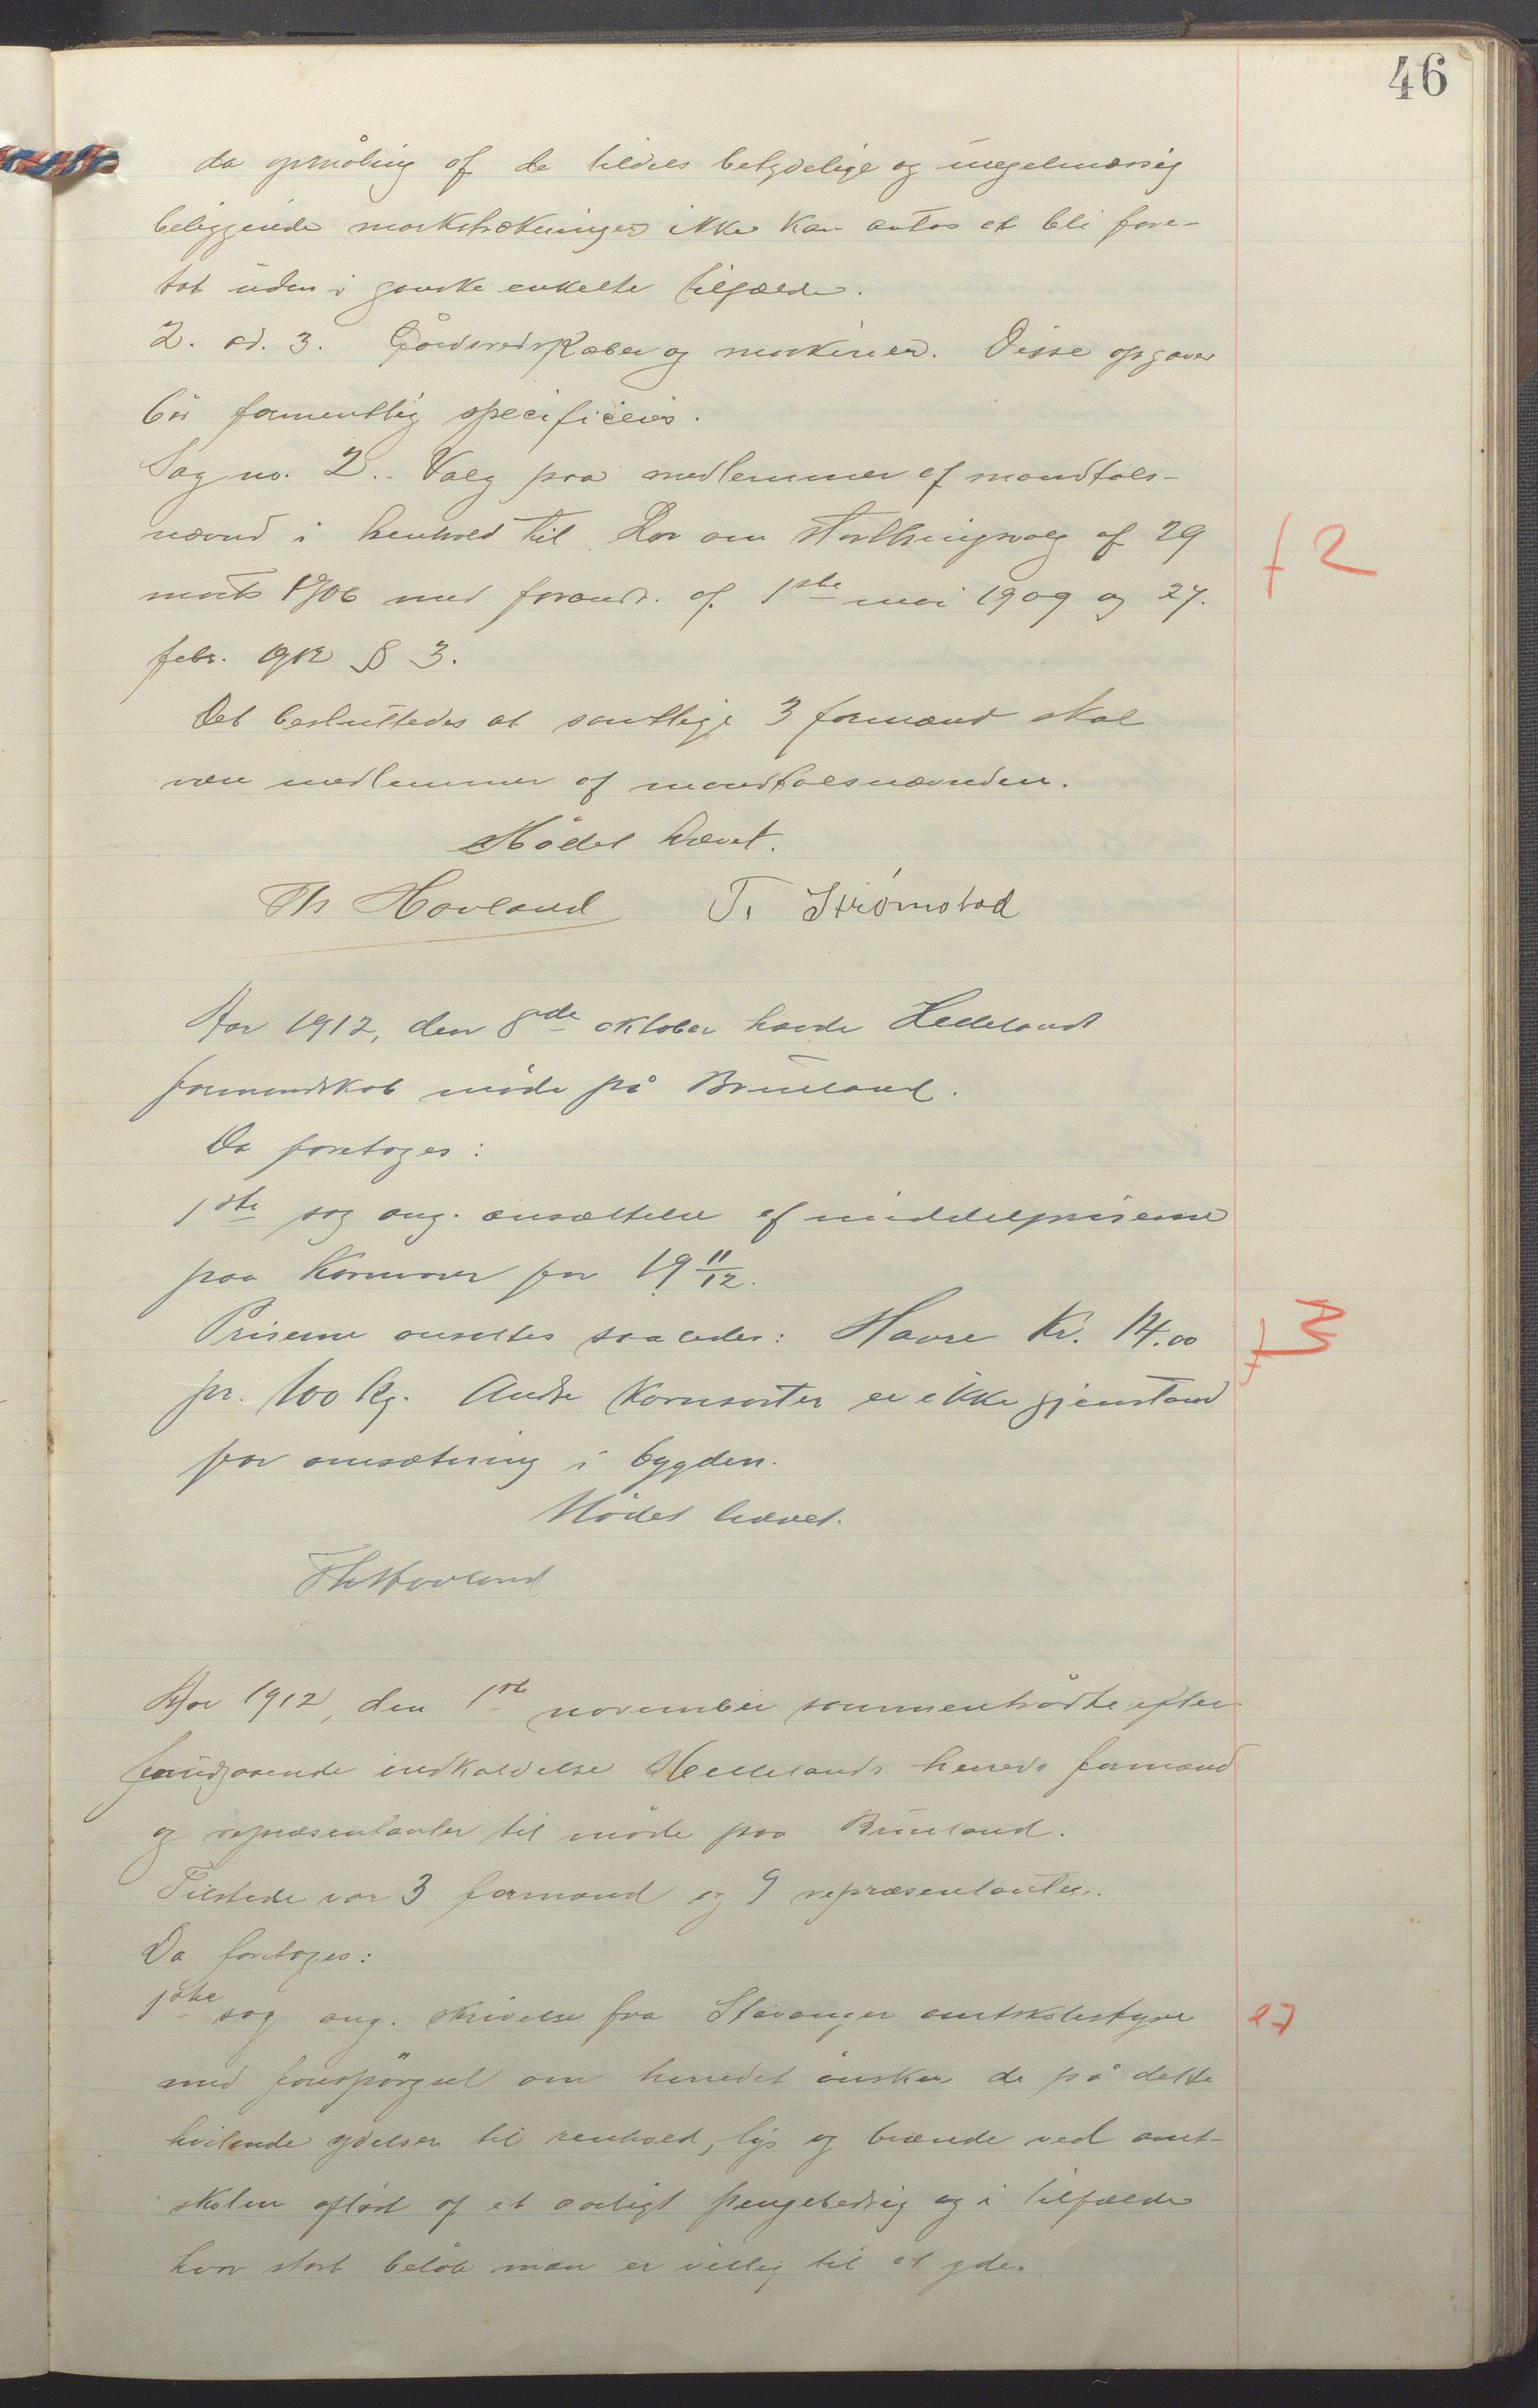 46
da opmåling af de tildels betydelige og uregelmæssig
beliggende markstrækninger ikke kan antas at bli fore-
tat uden i ganske enkelte tilfælde.
2. ad. 3. Gårdsredskaber og maskiner. Disse opgaver
bör formentlig specificeres.
Sag no. 2. Valg paa medlemmer af mandtals-
nævnd i henhold til Lov om storthingsvalg af 29
marts 1906 med forandr. af 1ste mai 1909 og 27.
febr. 1912 § 3.
Det besluttedes at samtlige 3 formænd skal
være medlemmer af mandtalsnævnden.
Mödet hævet.
Th Hovland T. Strømstad
† 2
Aar 1912, den 8de oktober havde Hellelands
formandskab möde på Brueland.
Da foretoges:
1ste sag ang. ansættelse af middelpriserne
paa kornvarer for 19 11/12.
Priserne ansattes saaledes: Havre Kr. 14.00
pr. 100 kg. Andre kornsorter er ikke gjenstand
for omsætning i bygden.
Mödet hævet.
Th Hovland
Aar 1912, den 1ste november sammentrådte efter
forudgaaende indkaldelse Hellelands herreds formænd
og repræsentanter til möde paa Brueland.
Tilstede var 3 formænd og 9 repræsentanter.
Da foretoges:
1ste sag ang. skrivelse fra Stavanger amtskolestyre
med forespörgsel om herredet önsker de på dette
hvilende ydelser til renhold, lys og brænde ved amt-
skolen aflöst af et aarligt pengebidrag og i tilfælde
hvor stort belöb man er villig til at yde.